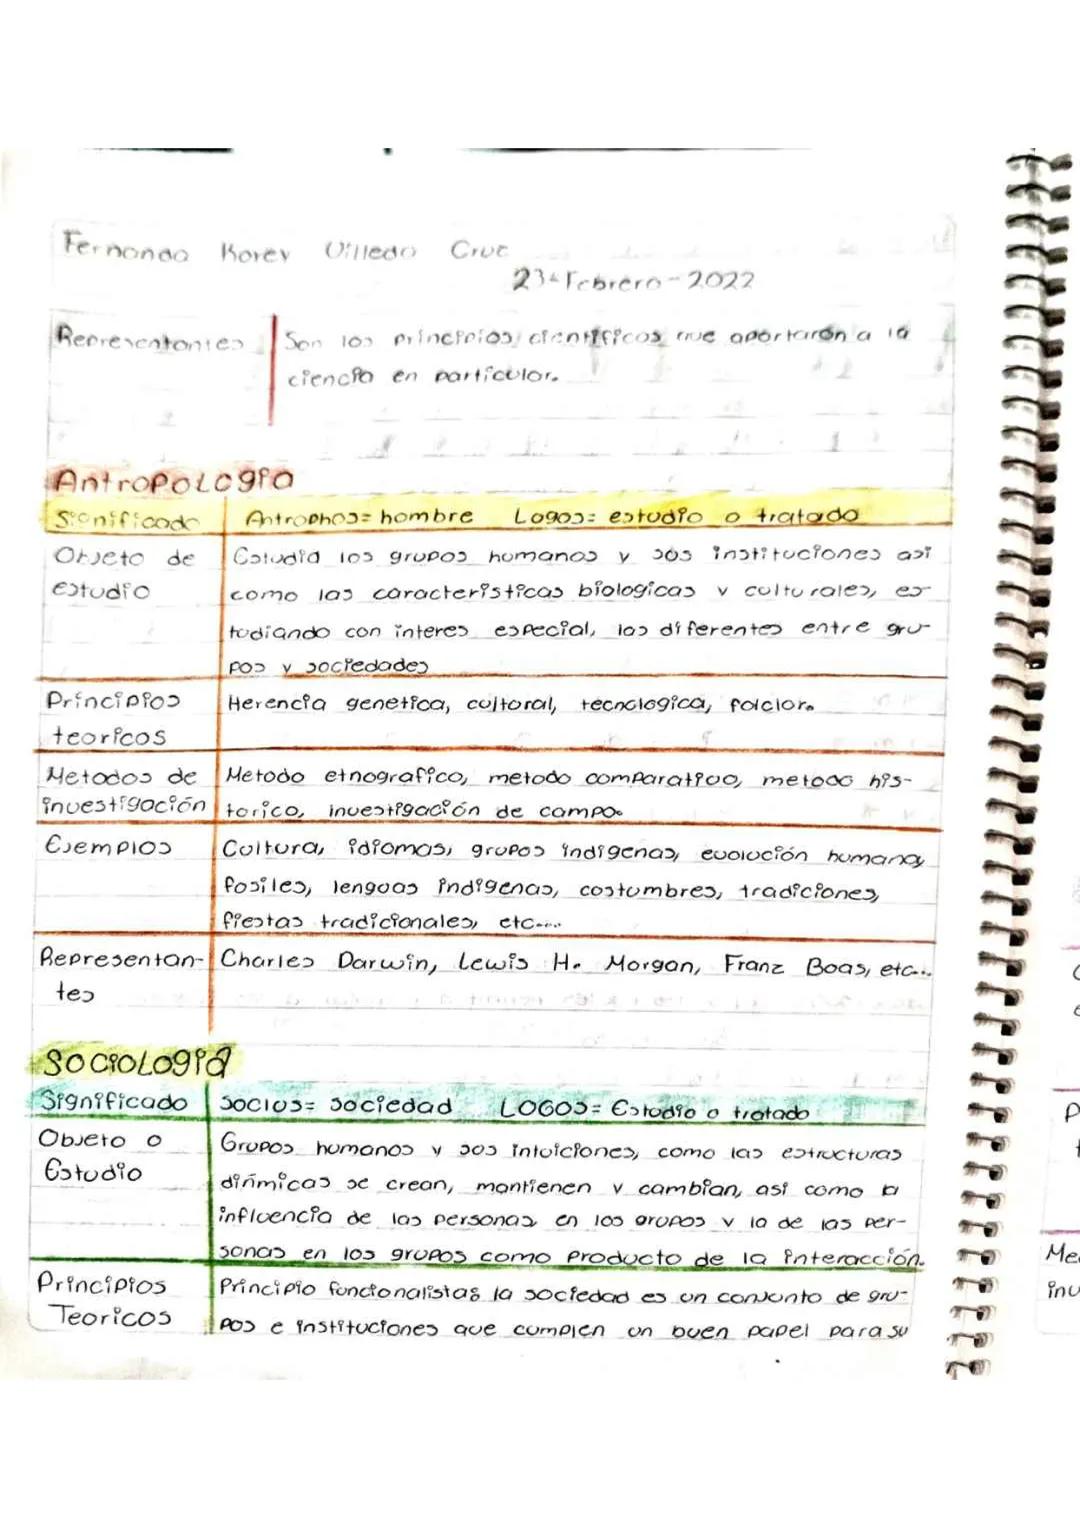 Fernanda Korey Villeda Cruz
23-Febrero-2022
Representantes Son los principios cientificos que aportarón a la
ciencia en particular.
Antropología
Significado Antrophos= hombre Logos= estudio o tratado
Objeto de Estudia los grupos humanos y sus instituciones asi
estudio como las caracteristicas biologicas y culturales, es-
tudiando con interes especial, las diferentes entre gru-
pos y sociedades
Principios Herencia genetica, cultural, tecnologica, folclor.
teoricos
Metodos de Metodo etnografico, metodo comparativo, metodo his-
investigación torico, investigación de campo.
Ejemplos Cultura, idiomas, grupos indigenas, evolución humana,
fosiles, lenguas indigenas, costumbres, tradiciones,
fiestas tradicionales, etc....
Representan- Charles Darwin, Lewis H. Morgan, Franz Boas, etc...
tes
Sociología
Significado Socius= Sociedad LOGOS= Estudio o tratado
Objeto o Grupos humanos y sus intuiciones, como las estructuras
Estudio dinmicas se crean, mantienen y cambian, asi como la
influencia de las personas en los grupos y la de las per-
sonas en los grupos como producto de la interacción.
Principios Principio funcionalistas la sociedad es un conjunto de gru-
Teoricos pos e instituciones que cumplen un buen papel para su